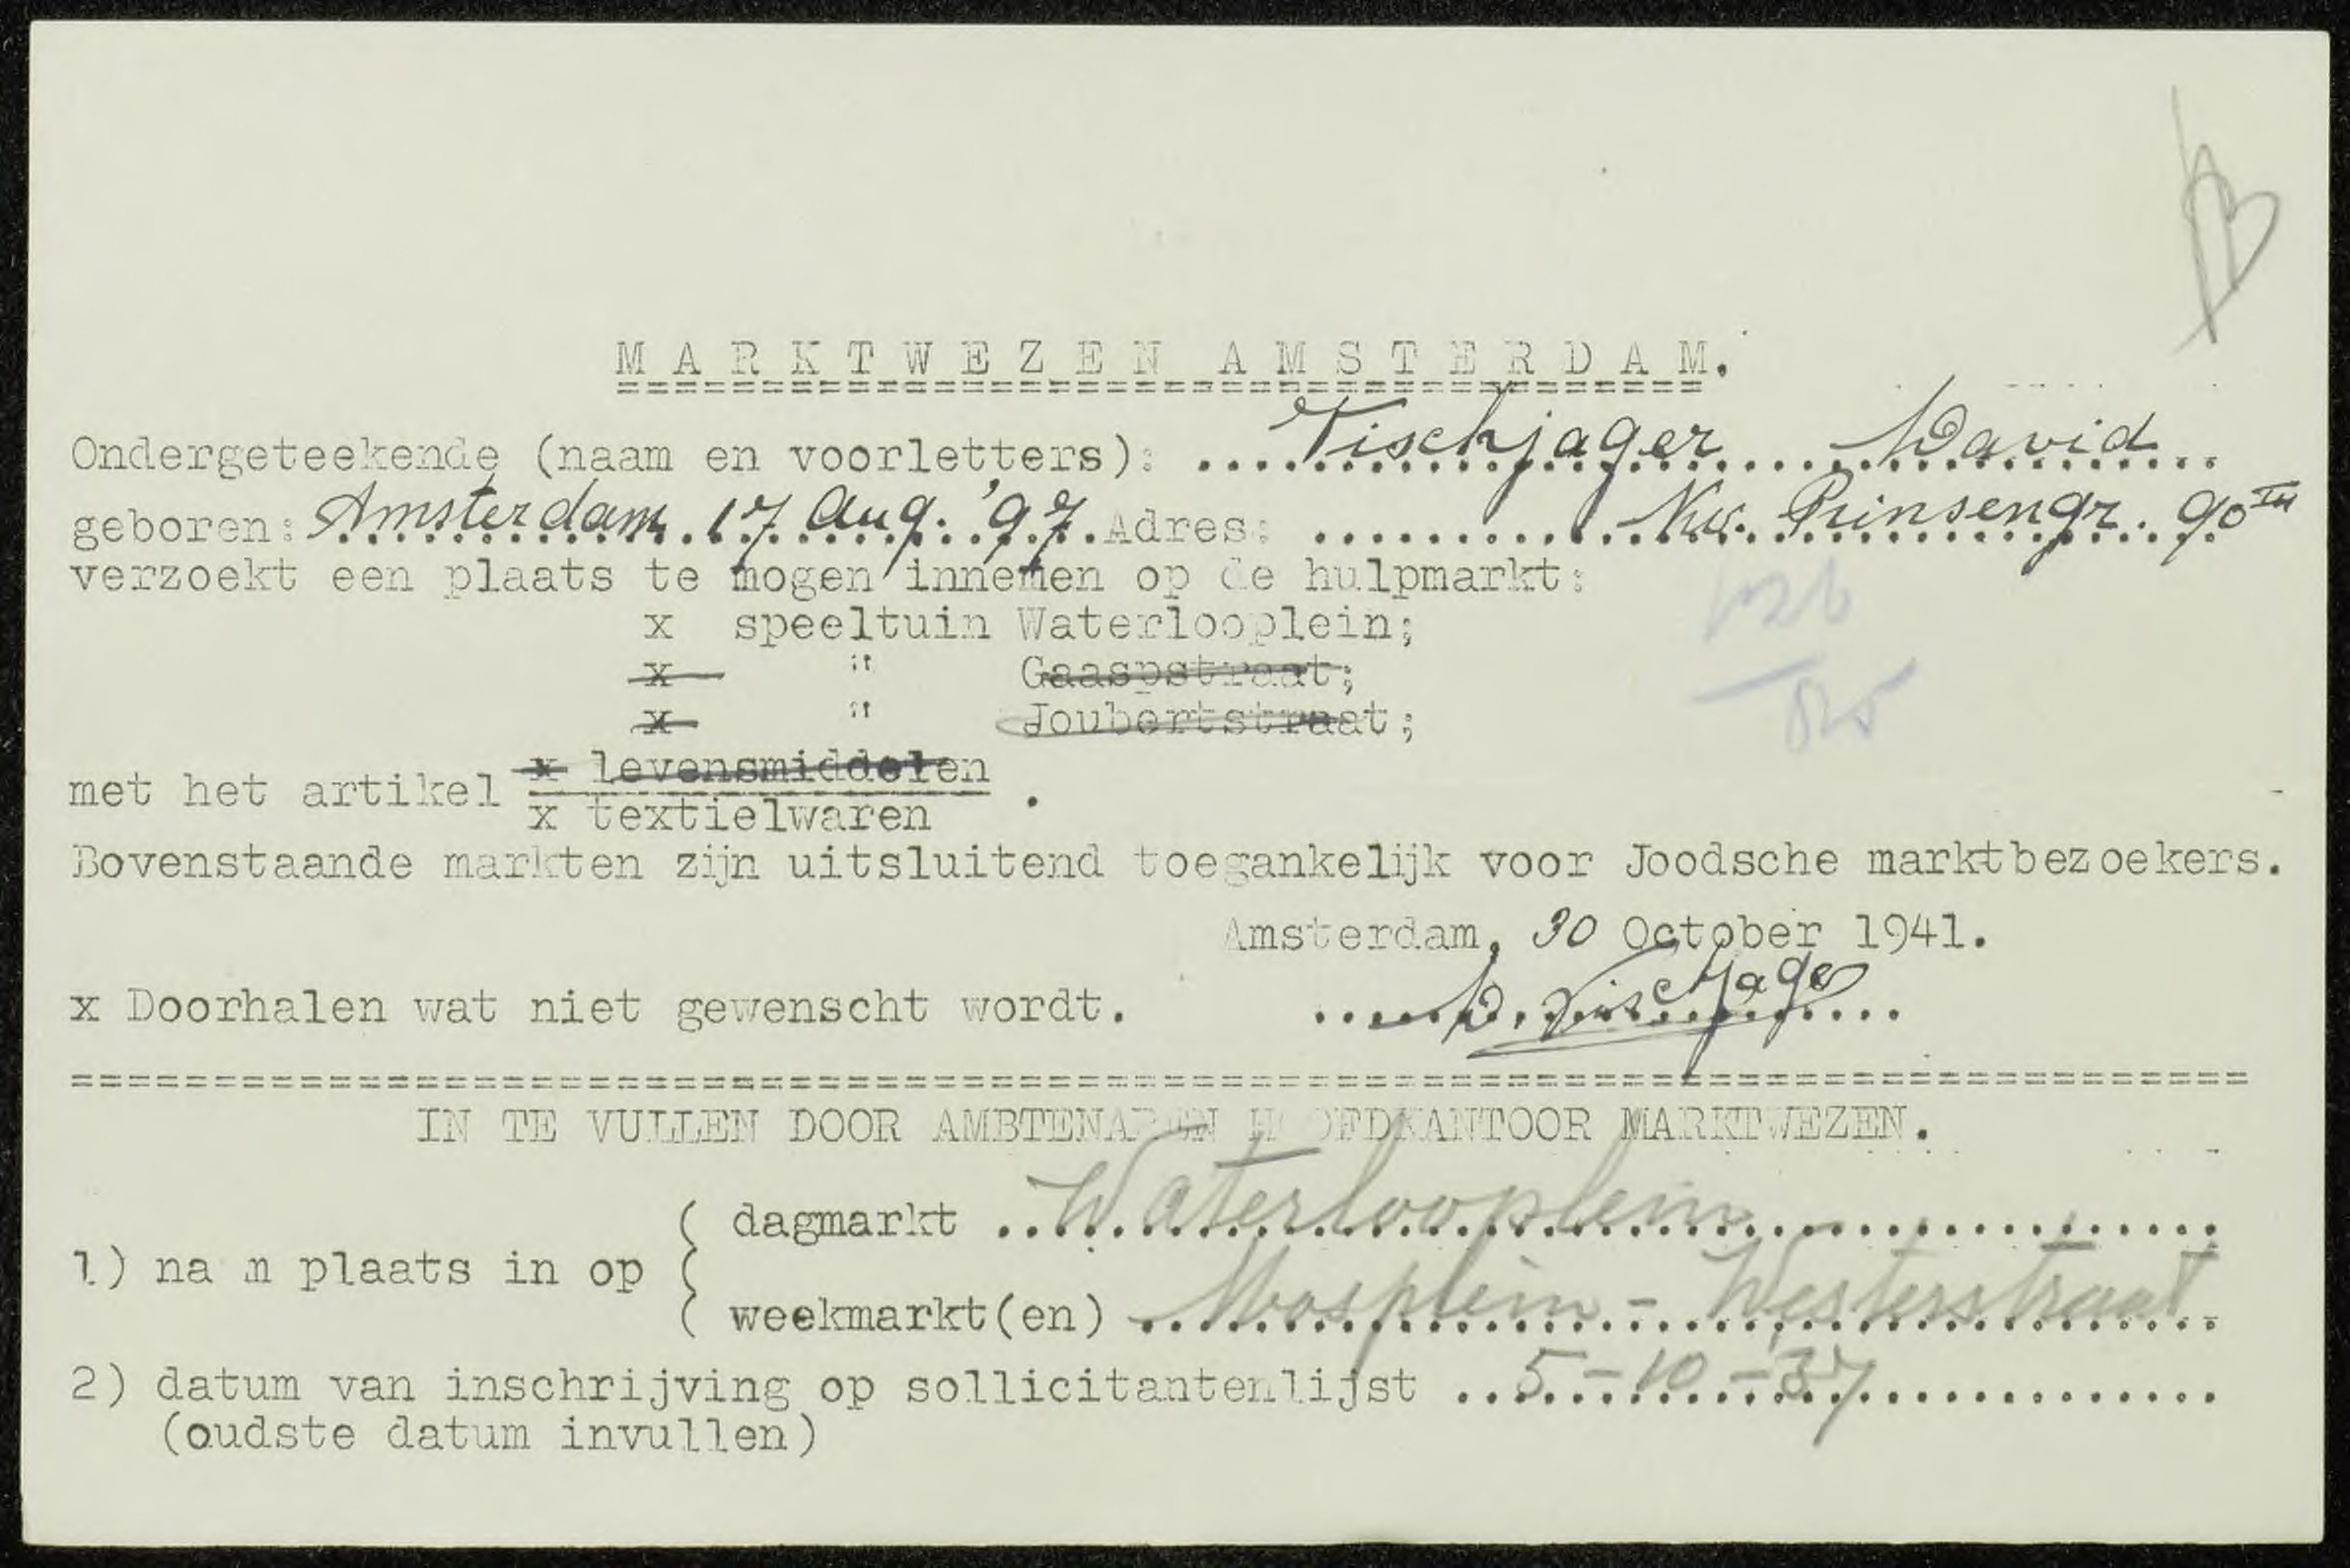 MARKTWEZEN AMSTERDAM.
Ondergeteekende (naam en voorletters): Vischjager David
geboren: Amsterdam 17 Aug. '97 Adres: Nw. Prinsengr. 90III
verzoekt een plaats te mogen innemen op de hulpmarkt:
x speeltuin Waterlooplein;
x " Gaaspstraat;
x " Joubertstraat;
x levensmiddelen
met het artikel
x textielwaren .
Bovenstaande markten zijn uitsluitend toegankelijk voor Joodsche marktbezoekers.
Amsterdam, 30 October 1941.
x Doorhalen wat niet gewenscht wordt. D. Vischjager
IN TE VULLEN DOOR AMBTENAREN HOOFDKANTOOR MARKTWEZEN.
( dagmarkt Waterlooplein
1) nam plaats in op (
( weekmarkt(en) Mosplein - Westerstraat
2) datum van inschrijving op sollicitantenlijst 5-10-37
(oudste datum invullen)